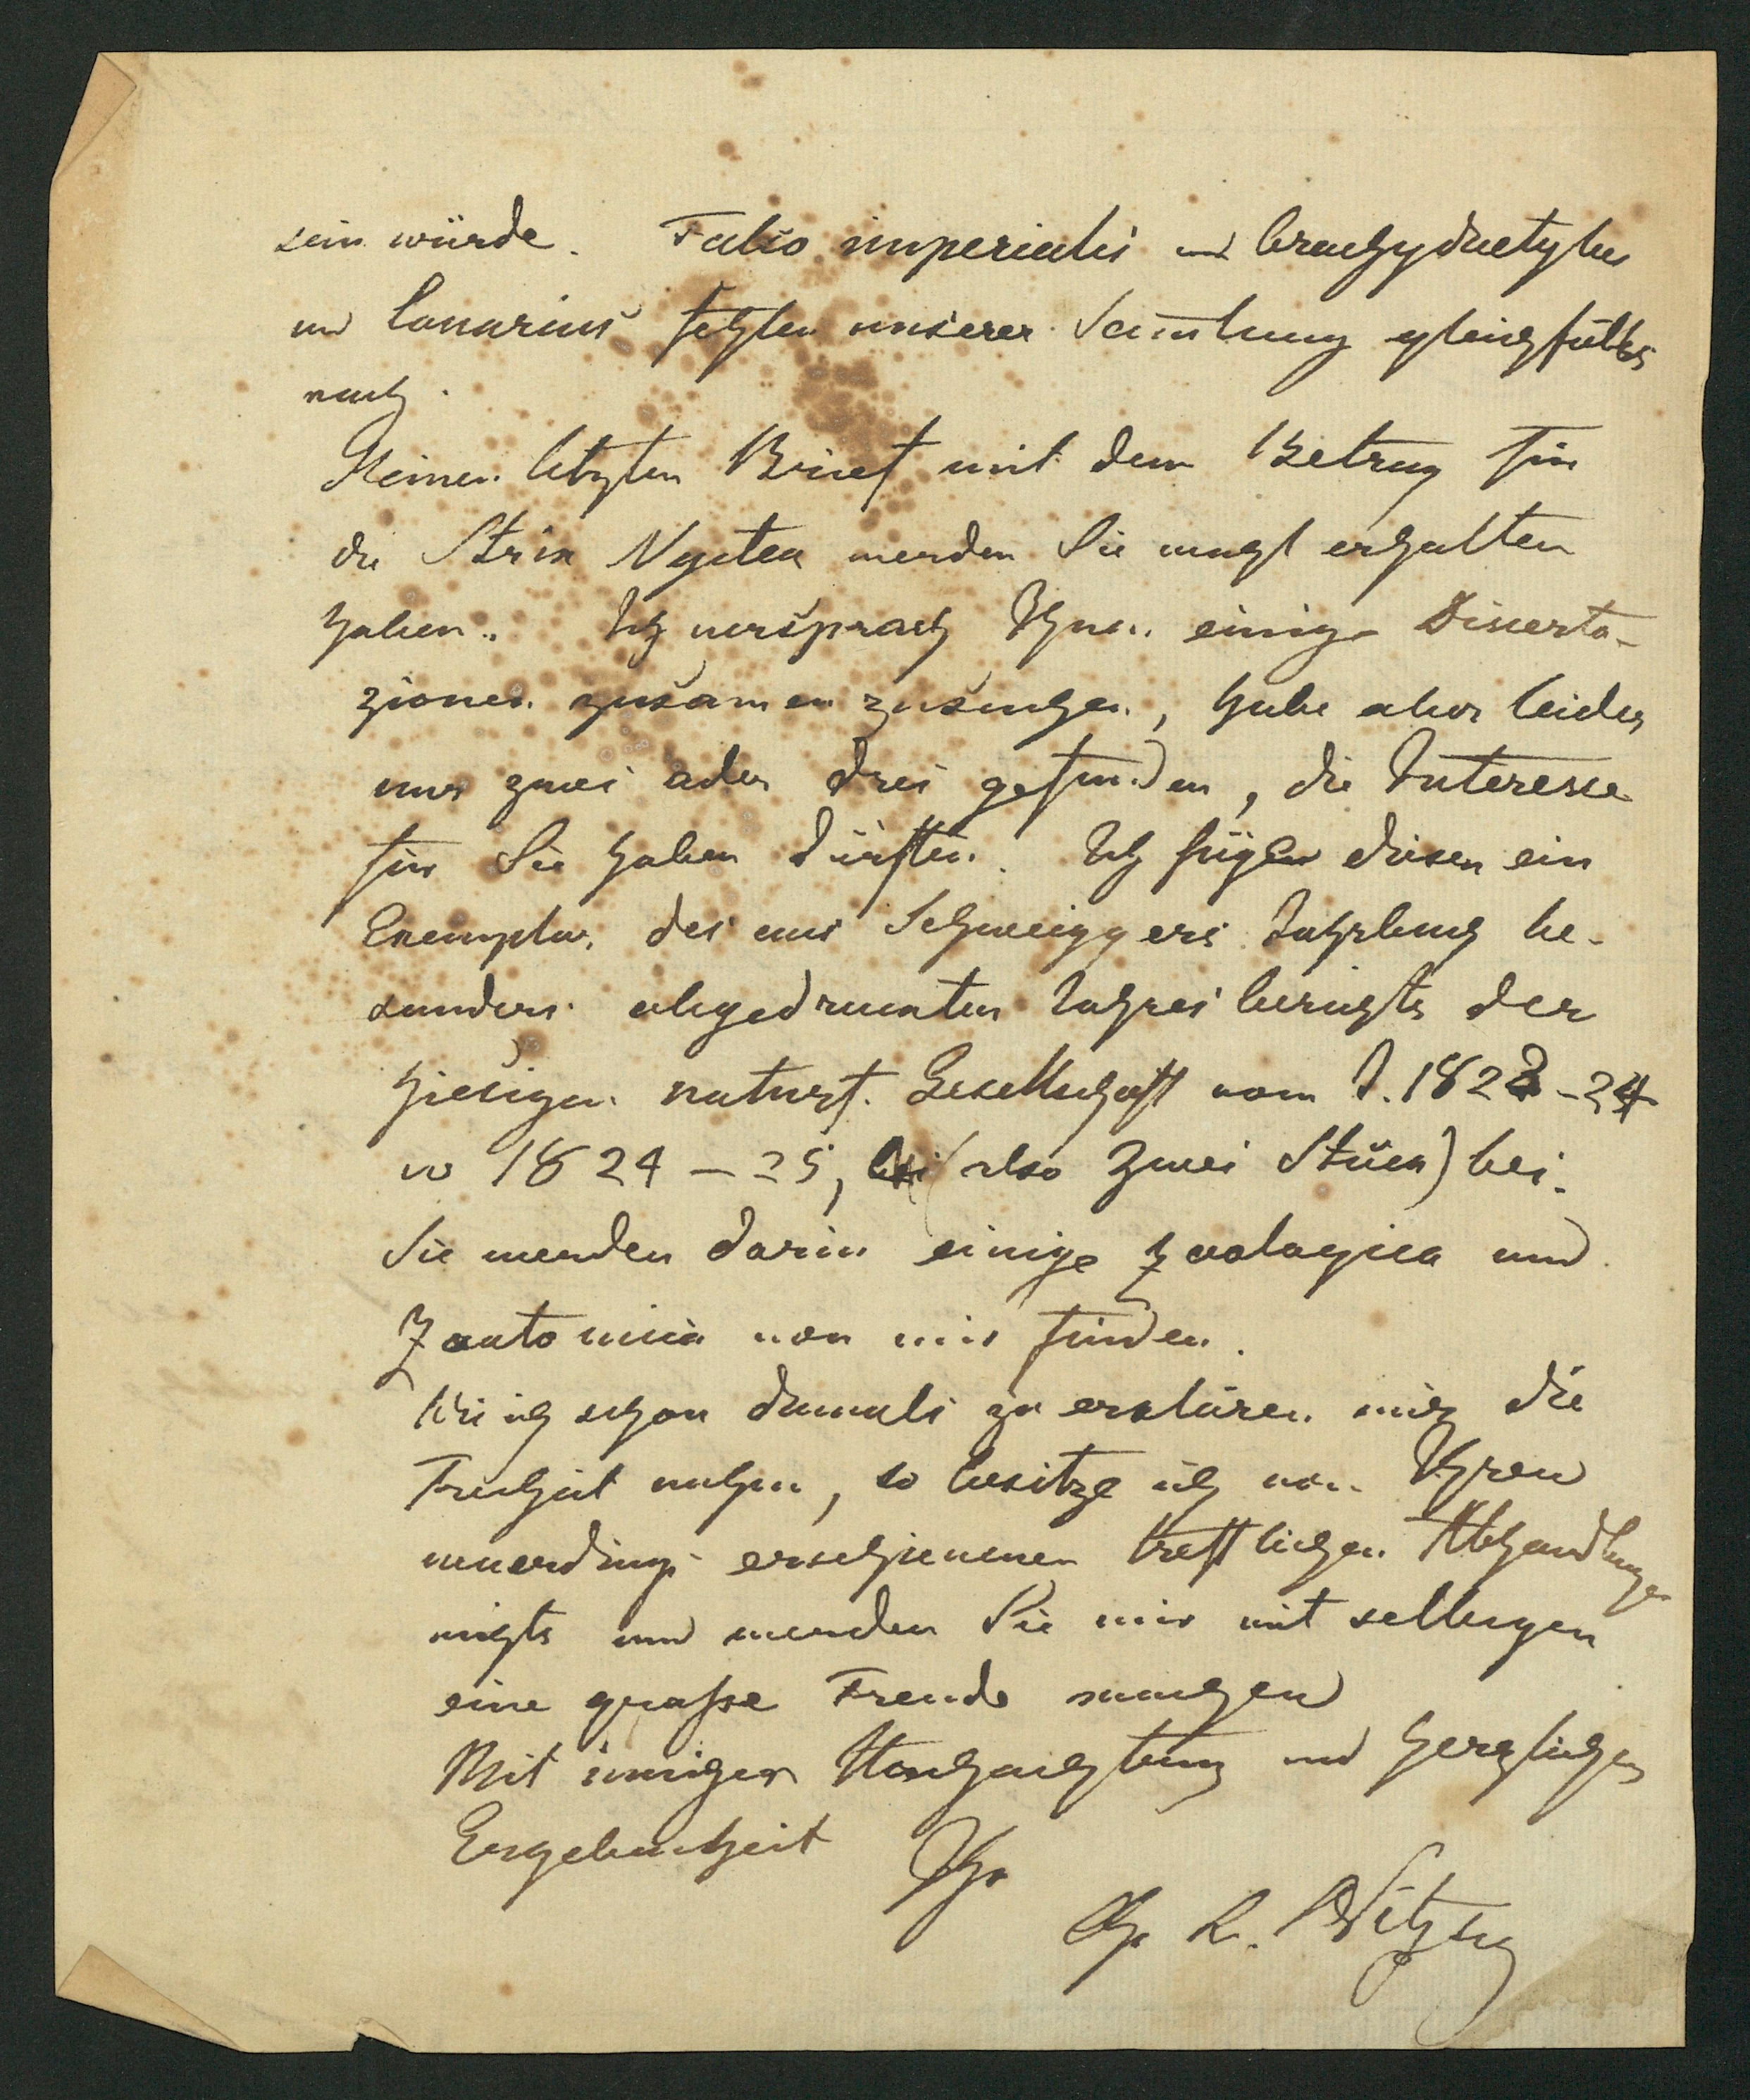 sein würde. Falco imperialis und brachydactylus
und Lanarius fehlen unserer Sam̄lung gleichfalls
noch.
Meinen letzten Brief mit dem Betrag für
die Strix Nyctea werden Sie wohl erhalten
haben. Ich versprach Ihnen einige Disserta-
zionen zusamen zu suchen, habe aber leider
nur zwei oder drei gefunden, die Interesse
für Sie haben dürften. Ich füge diesen ein
Exemplar des aus Schweiggers Jahrbuch be-
sonders abgedruckten Jahresberichts der
hiesigen naturf. Gesellschaft vom J. 1823-24
u 1824-25, (also zwei Stück) bei.
Sie werden darin einige zoologica und
Zootomica von mir finden.
Wie ich schon damals zu erklären mir die
Freiheit nahm, so besitze ich von Ihren
neuerdings erschienenen trefflichen Abhandlungen
nichts und werden Sie mir mit selbigen
eine große Freude machen
Mit inniger Hochachtung und herzlicher
Ergebenheit Ihr
Chr L. Nitzsch